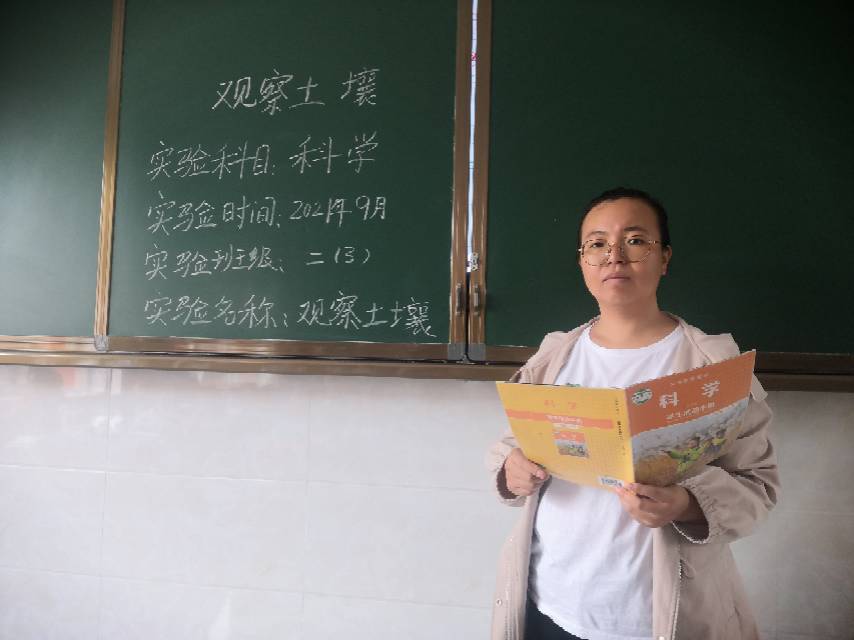 观察土壤
实验科目:科学
实验时间:2021年9月
实验班级:二(3)
实验名称:观察土壤
科学
科学
学生活动手册